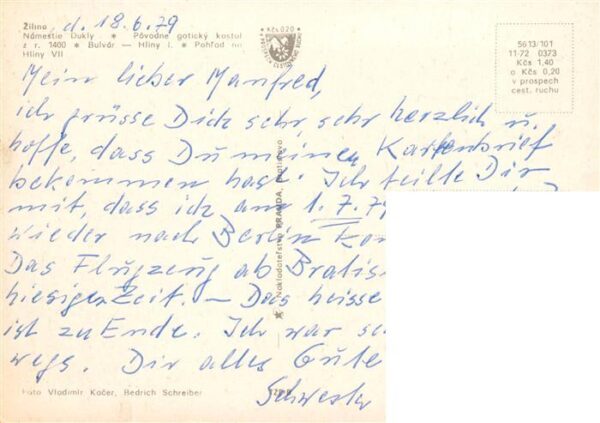 Žilina, d. 18.6.79
Námestie Dukly * Pôvodne gotický kostol
z r. 1400 * Bulvár — Hliny I. * Pohľad na
Hliny VII
Kčs 0,20
5613/101
11-72 0373
Kčs 1,40
o Kčs 0,20
v prospech
cest. ruchu
Mein lieber Manfred,
ich grüsse Dich sehr, sehr herzlich u.
hoffe, dass Du meinen Kartenbrief
bekommen hast. Ich teilte Dir
mit, dass ich am 1.7.79
wieder nach Berlin
Das Flugzeug ab
hiesiger Zeit. — Das heisse
ist zu Ende. Ich war
wegs. Dir alles Gute
Nakladateľstvo PRAVDA,
Foto Vladimír Kočer, Bedrich Schreiber